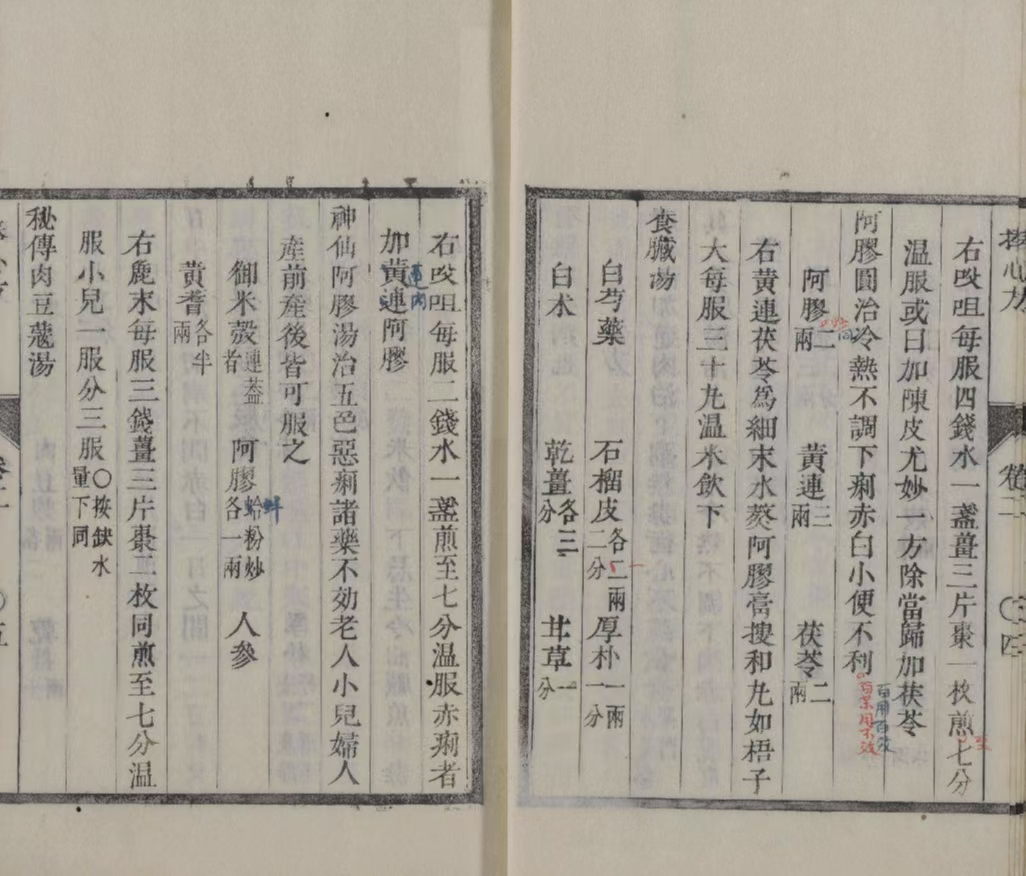 捧心方
卷二
四
右㕮咀每服四錢水一盞薑三片棗一枚煎七分
至
温服或曰加陳皮尤妙一方除當歸加茯苓
阿膠圓治冷熱不調下痢赤白小便不利
百用百效
阿膠二兩
黃連三兩
茯苓二兩
右黃連茯苓爲細末水葵阿膠膏搜和丸如梧子
大每服三十丸温米飲下
食臟湯
白芍藥
石榴皮各二兩二分
厚朴一兩一分
白朮
乾薑各三分
甘草一分
右㕮咀每服二錢水一盞煎至七分温服赤痢者
加黃連阿膠
神仙阿膠湯治五色惡痢諸藥不効老人小兒婦人
產前產後皆可服之
御米殼連蓋者
阿膠蛤粉炒各一兩
蚌
人參
黃耆各半兩
右麁末每服三錢薑三片棗二枚同煎至七分温
服小兒一服分三服○按缺水量下同
秘傳肉豆蔻湯
五